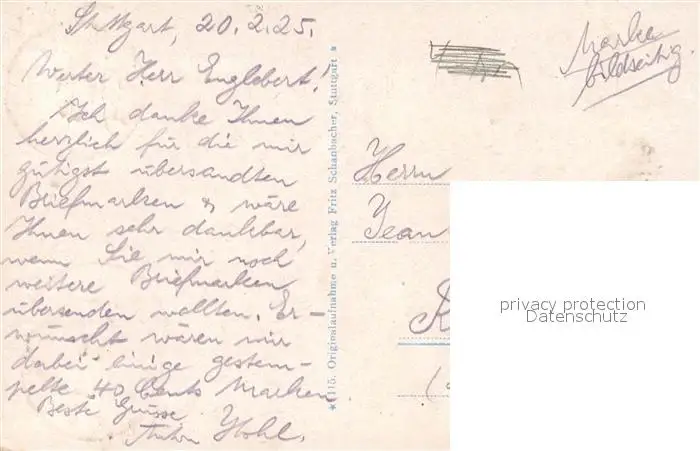 Stuttgart, 20.2.25.
Werter Herr Englebert!
Ich danke Ihnen
herzlich für die mir
gütigst übersandten
Briefmarken & wäre
Ihnen sehr dankbar,
wenn Sie mir noch
weitere Briefmarken
übersenden wollten. Er-
wünscht wären mir
dabei einige gestem-
pelte 40 Cents Marken.
Beste Grüsse
Anton Hohl.
* 115. Originalaufnahme u. Verlag Fritz Schanbacher, Stuttgart *
Marke
bildseitig.
Herrn
Jean
privacy protection
Datenschutz